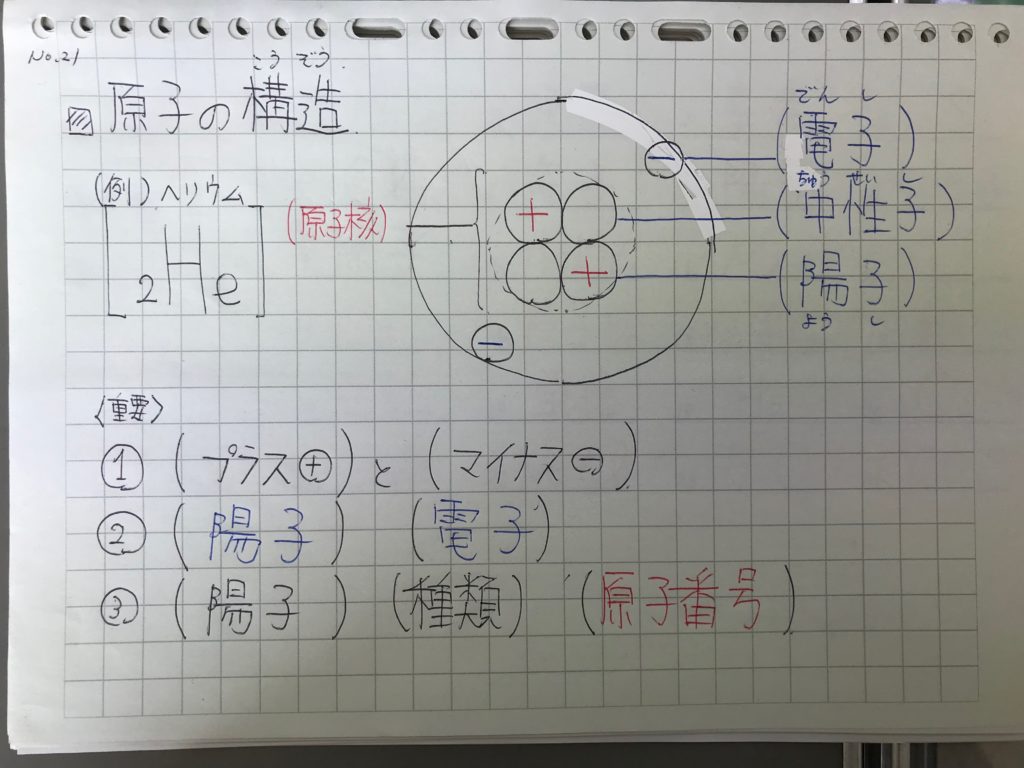 No.21
こうぞう
図 原子の構造
(例)ヘリウム
₂He
(原子核)
+
+
−
−
でんし
(電子)
ちゅうせいし
(中性子)
(陽子)
ようし
〈重要〉
① (プラス⊕)と(マイナス⊖)
② (陽子) (電子)
③ (陽子) (種類) (原子番号)